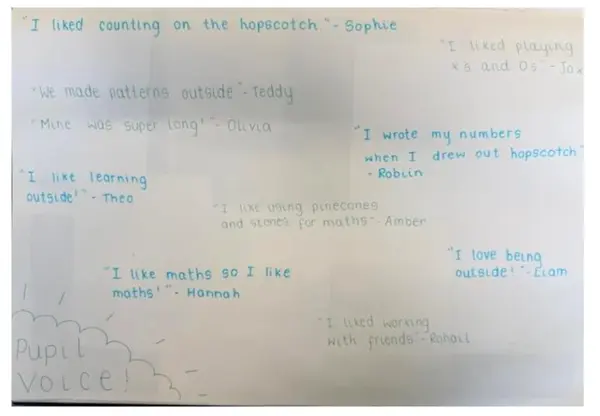 "I liked counting on the hopscotch" - Sophie
"I liked playing
xs and Os" - Jax
"We made patterns outside" - Teddy
"Mine was super long!" - Olivia
"I wrote my numbers
when I drew out hopscotch"
- Robiin
"I like learning
outside!" - Theo
"I like using pinecones
and stones for maths" - Amber
"I love being
outside!" - Liam
"I like maths so I like
maths!" - Hannah
"I liked working
with friends" - Rohail
Pupil
Voice!